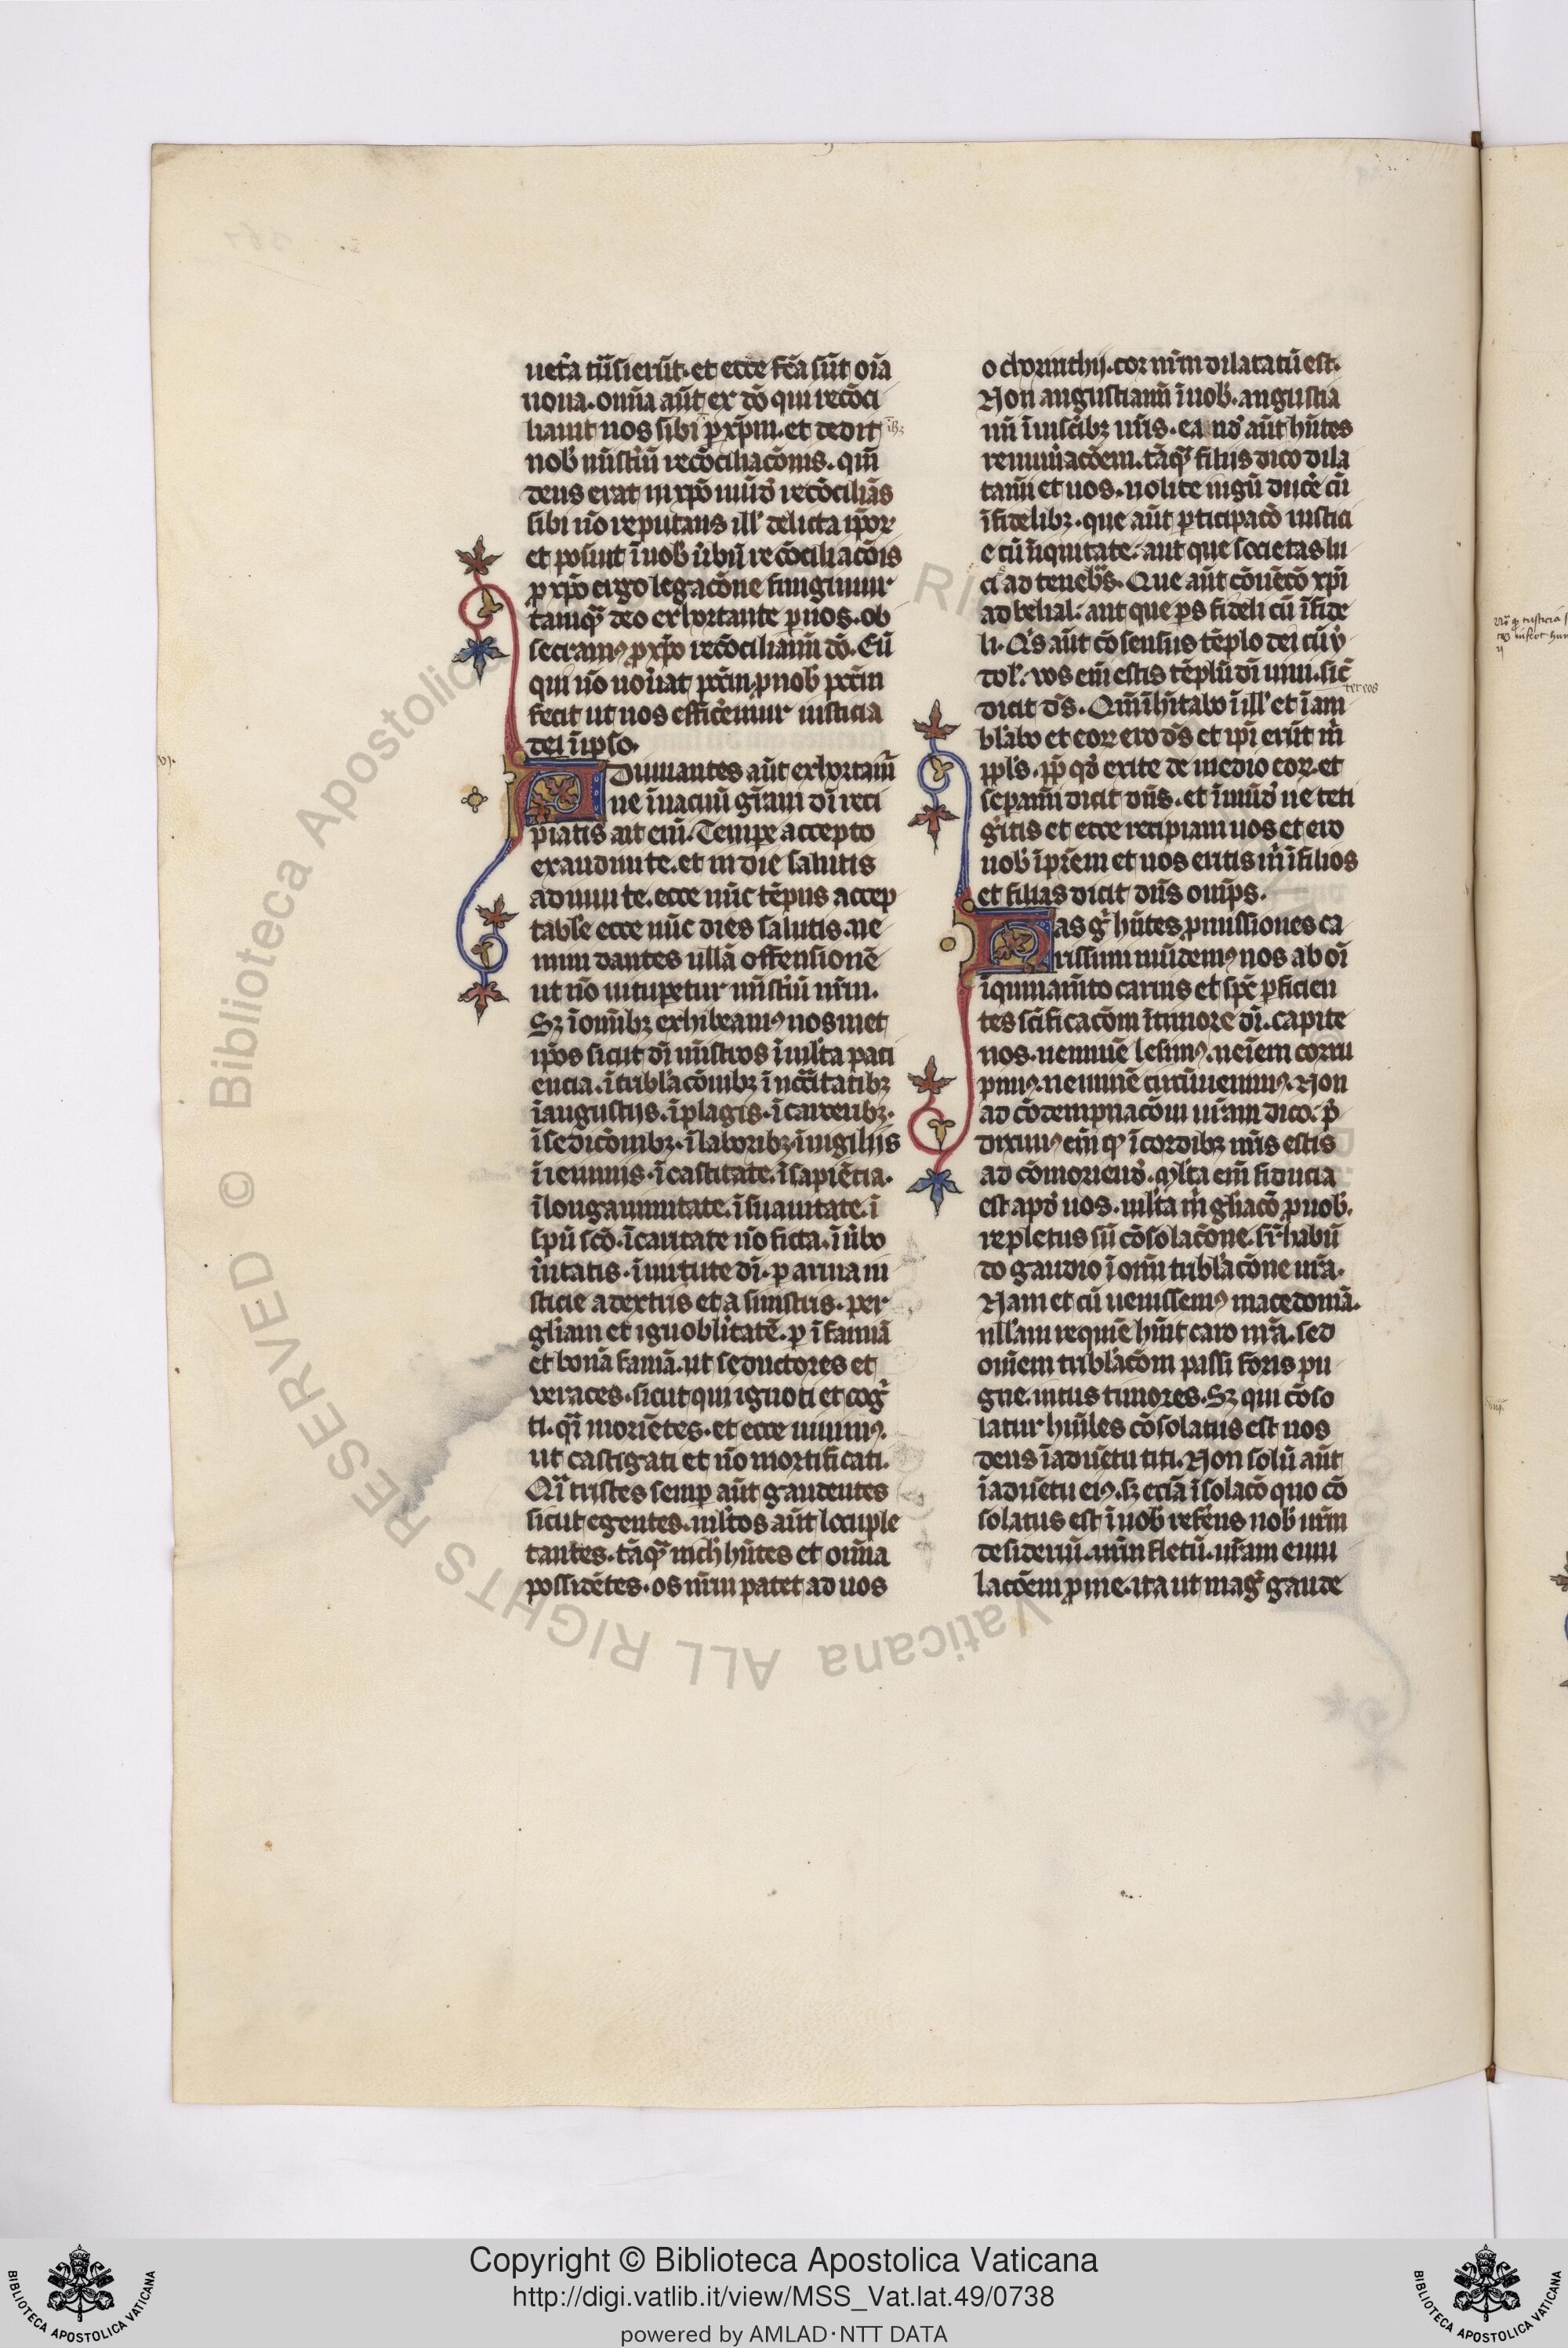 uet̃a tñsierũt. et ecce fc̃a sũt oĩa
noua. om̃ia aũt ex dõ qui recõci
liauit nos sibi ꝑ xp̃m. et dedit
nob̾ mĩstiũ recõciliacõnis. qm̃
deus erat in xp̃o mũd̾ recõciliãs
sibi nõ reputans ill̾ delicta ip̃oꝝ
et posuit ĩ nob̾ ũbũ recõciliacõis
ꝓ xp̃o ergo legacõne fungimur
tamqᷓ deo exhortante ꝑ nos. ob
secram᷒ ꝓ xp̃o recõciliamĩ dõ. Eũ
qui nõ nouat pc̃cm. ꝓ nob̾ pc̃cm
fecit ut nos effic̾emur iusticia
dei ĩ ip̃so.
Adiuuantes aũt exhortam̃
ne ĩ uacuũ gr̃am dĩ reci
piatis ait em̃. Tempe accepto
exaudiui te. et in die salutis
adiuui te. ecce nũc tẽpus accep
table ecce nũc dies salutis. ne
mini dantes ullã offensionẽ
ut nõ uitupetur mĩstiũ nr̃m.
Sꝫ ĩ om̃ibꝫ exhibeam᷒ nosmet
ip̃os sicut dĩ mĩstros ĩ mlta paci
encia. ĩ tribl̾acõnibꝫ ĩ nccitatibꝫ
ĩ angustijs. ĩ plagis. ĩ carcerbꝫ.
ĩ sedicõnibꝫ. ĩ laboribꝫ. ĩ uigilijs
ĩ ieiuniis. ĩ castitate. ĩ sapiẽcia.
ĩ longanimitate. ĩ suauitate. ĩ
sp̃u scõ. ĩ caritate nõ ficta. ĩ ũbo
ũitatis. ĩ uirtute dĩ. ꝑ arma iu
sticie a dextris et a sinistris. per
gl̃iam et ignobl̾itatẽ. ꝑ ĩfamiã
et bonã famã. ut seductores et
veraces. sicut qui ignoti et cog̾
ti. qᷓi moriẽtes. et ecce uiuim᷒.
ut castigati et nõ mortificati.
Qᷓi tristes semꝑ aũt gaudentes
sicut egentes. ml̾tos aũt locuple
tantes. tãqᷓ nich̾ hñtes et om̃ia
possidẽtes. os nr̃m patet ad uos
o chorinthij. cor nr̃m dilatatũ est.
Non angustiamĩ ĩ nob̾. angustia
mĩ ĩ uisc̾ibꝫ ur̃is. eand̾ aũt hñtes
remun̾acõem. tãqᷓ filiis dico dila
tamĩ et uos. nolite iugũ duc̾e cũ
ĩfidelibꝫ. que aũt ꝑticipacõ iustici
e cũ ĩiquitate. aut que societas lu
ci ad teneb̾s. Que aũt cõuẽcõ xp̃i
ad belial. aut que ꝑs fideli cũ ĩfide
li. Qis aũt cõsensus tẽplo dei cũ y
dol̾. vos em̃ estis tẽplũ dĩ uiui. sic̃
dicit d̃s. Qm̃ ĩhitabo ĩ ill̾ et ĩam
bl̾abo et eoꝝ ero d̃s et ip̃i erũt m̃
ppl̃s. pp̃ qd̾ exite de medio eoꝝ. et
sepamĩ dicit dñs. et ĩmũd̾ ne teti
g̾itis et ecce recipiam uos et ero
uob̾ ĩ pr̃em et uos eritis m̃ ĩ filios
et filias dicit dñs om̃ps.
Has g̾ hñtes ꝓmissiones ca
rissimi mũdem᷒ nos ab oĩ
ĩquinam̃to carnis et sp̃c ꝑficien
tes sc̃ificacõm ĩ timore dĩ. capite
nos. neminẽ lesim᷒. neĩem corru
pim᷒. neminẽ circũuenim᷒. Non
ad cõdempnacõm ur̃am dico. p̃
dixim᷒ em̃ ꝙ ĩ cordibꝫ nr̃is estis
ad cõmoriend̾. mlta em̃ fiducia
est apd̾ uos. ml̾ta m̃ gl̃iacõ ꝓ uob̾.
repletus sũ cõsolacõne. suꝑhabũ
do gaudio ĩ om̃i tribl̾acõne nr̃a.
Nam et cũ uenissem᷒ macedoniã.
ull̾am requiẽ hũit caro nr̃a. sed
om̃em tribl̾acõm passi foris pu
gne. intus timores. Sꝫ qui cõso
latur humles cõsolatus est nos
deus ĩ aduẽtu titi. Non solũ aũt
ĩ aduẽtu ei᷒. sꝫ eciã ĩ solacõ quo cõ
solatus est ĩ uob̾ refẽns nob̾ ur̃m
desideriũ. ur̃m fletũ. ur̃am emu
lacõem ꝓ me. ita ut mag̾ gaude
Copyright © Biblioteca Apostolica Vaticana
http://digi.vatlib.it/view/MSS_Vat.lat.49/0738
powered by AMLAD·NTT DATA